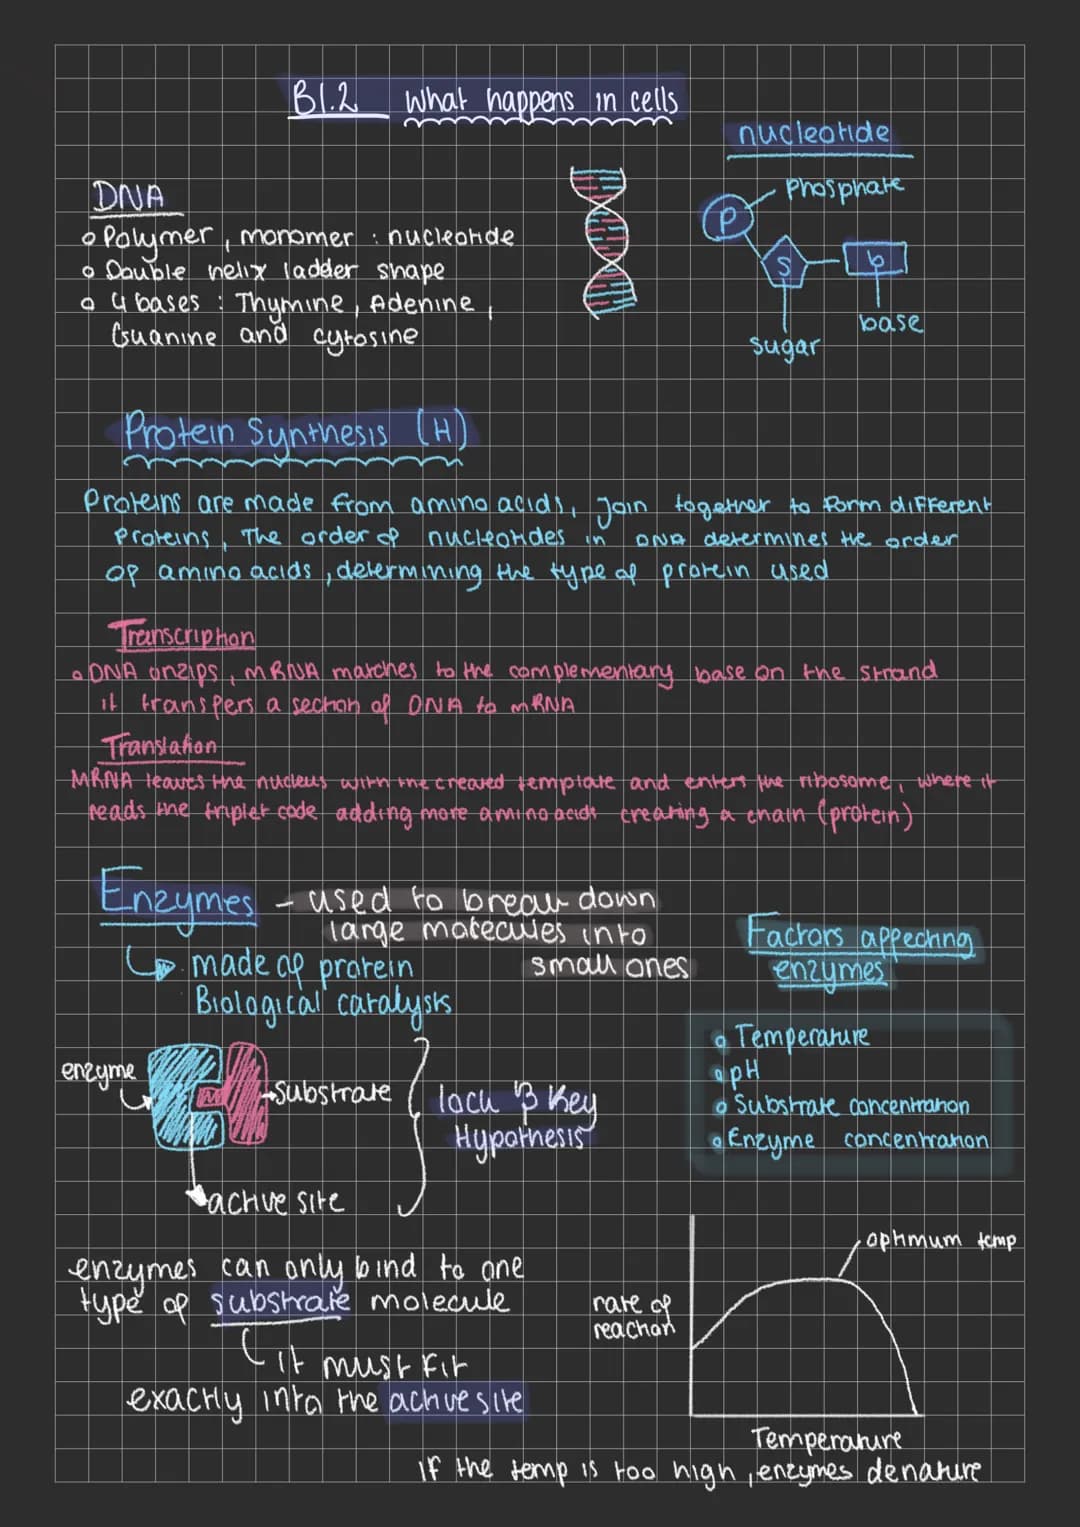 B1.2 What happens in cells
nucleotide
Phosphate
P
S
b
base
sugar
DNA
Polymer, monomer : nucleotide
Double helix ladder shape
4 bases : Thymine, Adenine,
Guanine and cytosine
Protein Synthesis (H)
Proteins are made from amino acids, Join together to form different
proteins, The order of nucleotides in DNA determines the order
of amino acids, determining the type of protein used
Transcription
DNA unzips, mRNA matches to the complementary base on the strand
it transfers a section of DNA to mRNA
Translation
MRNA leaves the nucleus with the created template and enters the ribosome, where it
reads the triplet code adding more amino acids creating a chain (protein)
Enzymes - used to break down
large molecules into
small ones
made of protein
Biological catalysts
enzyme
substrate
active site
lock & Key
Hypothesis
Factors affecting
enzymes
Temperature
pH
Substrate concentration
Enzyme concentration
enzymes can only bind to one
type of substrate molecule
it must fit
exactly into the active site
optimum temp
rate of
reaction
Temperature
If the temp is too high, enzymes denature